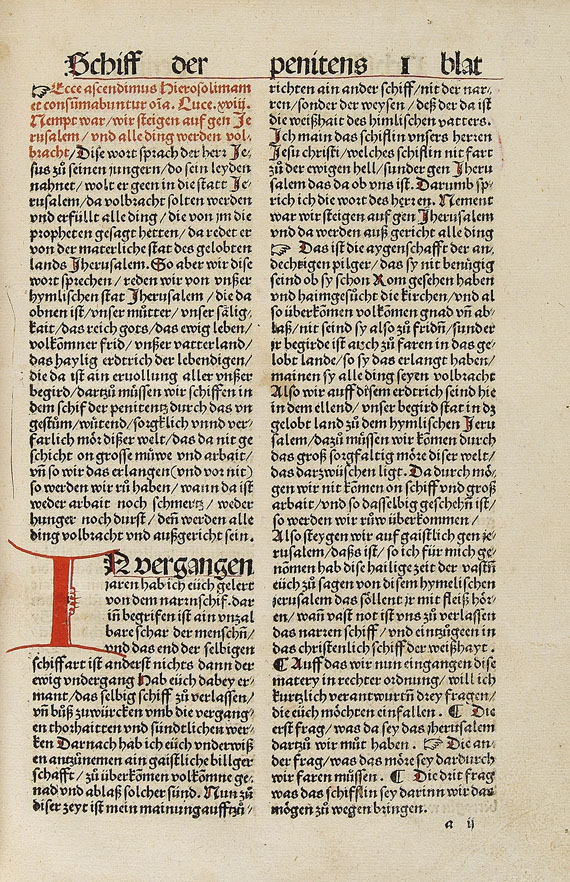 Schiff der penitens I blat
☞Ecce ascendimus Hierosolimam
et consūmabuntur oīa. Luce. xviij.
Nempt war/wir steigen auf gen Je
rusalem/vnd alle ding werden vol⸗
bracht/Dise wort sprach der herr Je⸗
sus zů seinen jungern/do sein leyden
nahnet/wolt er geen in die statt Je⸗
rusalem/da volbracht solten werden
vnd erfüllt alle ding/die von jm die
propheten gesagt hetten/da redet er
von der materliche stat des gelobten
lands Jherusalem. So aber wir dise
wort sprechen/reden wir von vnßer
hymlischen stat Jherusalem/die da
obnen ist/vnser můtter/vnser sälig⸗
kait/das reich gots/das ewig leben/
volkōmner frid/vnßer vatterland/
das haylig erdtrich der lebendigen/
die da ist ain eruollung aller vnßer
begird/dartzů müssen wir schiffen in
dem schif der penitentz durch das vn
gestüm/wůtend/sorgklich vnnd ver⸗
farlich mör dißer welt/das da nit ge
schicht on grosse müwe vnd arbait/
vn̄ so wir das erlangen(vnd vor nit)
so werden wir rů haben/wann da ist
weder arbait noch schmertz/weder
hunger noch durst/den̄ werden alle
ding volbracht vnd außgericht sein.
IN vergangen
jaren hab ich eüch gelert
von dem narrnschif. dar
in̄ begrifen ist ain vnzal
bare schar der menschn̄/
vnd das end der selbigen
schiffart ist anderst nichts dann der
ewig vndergang Hab eüch dabey er⸗
mant/das selbig schiff zů verlassen/
vn̄ bůß zuwürcken vmb die vergang⸗
en thorhaitten vnd sündtlichen wer⸗
ken Darnach hab ich eüch vnderwiß
en antzůnemen ain gaistliche billger
schafft/zů überkōmen volkōmne ge⸗
nad vnd ablaß solcher sünd. Nun zů
diser zeyt ist mein mainung aufftzů⸗
richten ain ander schiff/nit der nar⸗
ren/sonder der weysen/deß der da ist
die weißhait des himlischen vatters.
Ich main das schiflin vnsers herren
Jesu christi/welches schiflin nit fart
zů der ewigen hell/sunder gen Jheru
salem das da ob vns ist. Darumb sp⸗
rich ich die wort des herren. Nement
war wir steigen auff gen Jherusalem
vnd da werden auß gericht alle ding
☞ Das ist die aygenschafft der an⸗
dechtigen pilger/das sy nit benügig
seind ob sy schon Rom gesehen haben
vnd haimgesůcht die kirchen/vnd al
so überkōmen volkōmen gnad vn̄ ab⸗
laß/nit seind sy also zů fridn̄/sunder
jr begirde ist auch zů faren in das ge⸗
lobt lande/so sy das erlangt haben/
mainen sy alle ding seyen volbracht
Also wir auff disem erdtrich seind hie
in dem ellend/vnser begird stat in dz
gelobt land zů dem hymlischen Jeru
salem/dazů müssen wir kōmen durch
das groß sorgfaltig möre diser welt/
das darzwüschen ligt. Da durch mö⸗
gen wir nit kōmen on schiff vnd groß
arbait/vnd so dasselbig geschehn̄ ist/
so werden wir růw überkommen/
Also steygen wir auff gaistlich gen je⸗
rusalem/daßs ist/so ich für mich ge⸗
nōmen hab die hailige zeit der vastn̄
eüch zů sagen von disem hymelischen
jerusalem das söllent jr mit fleiß hör⸗
en/wan̄ vast not ist vns zů verlassen
das narren schiff/vnd einzůgeen in
das christenlich schiff der weißhayt.
¶ Auff das wir nun eingangen dise
matery in rechter ordnung/will ich
kurtzlich verantwurtn̄ drey fragen/
die eüch möchten einfallen. ¶ Die
erst frag/was da sey das jherusalem
dartzů wir můt haben. ☞ Die an⸗
der frag/was das möre sey dardurch
wir faren müssen. ¶ Die drit frag
was das schiflin sey darinn wir das
mögen zů wegen bringen.
a ij